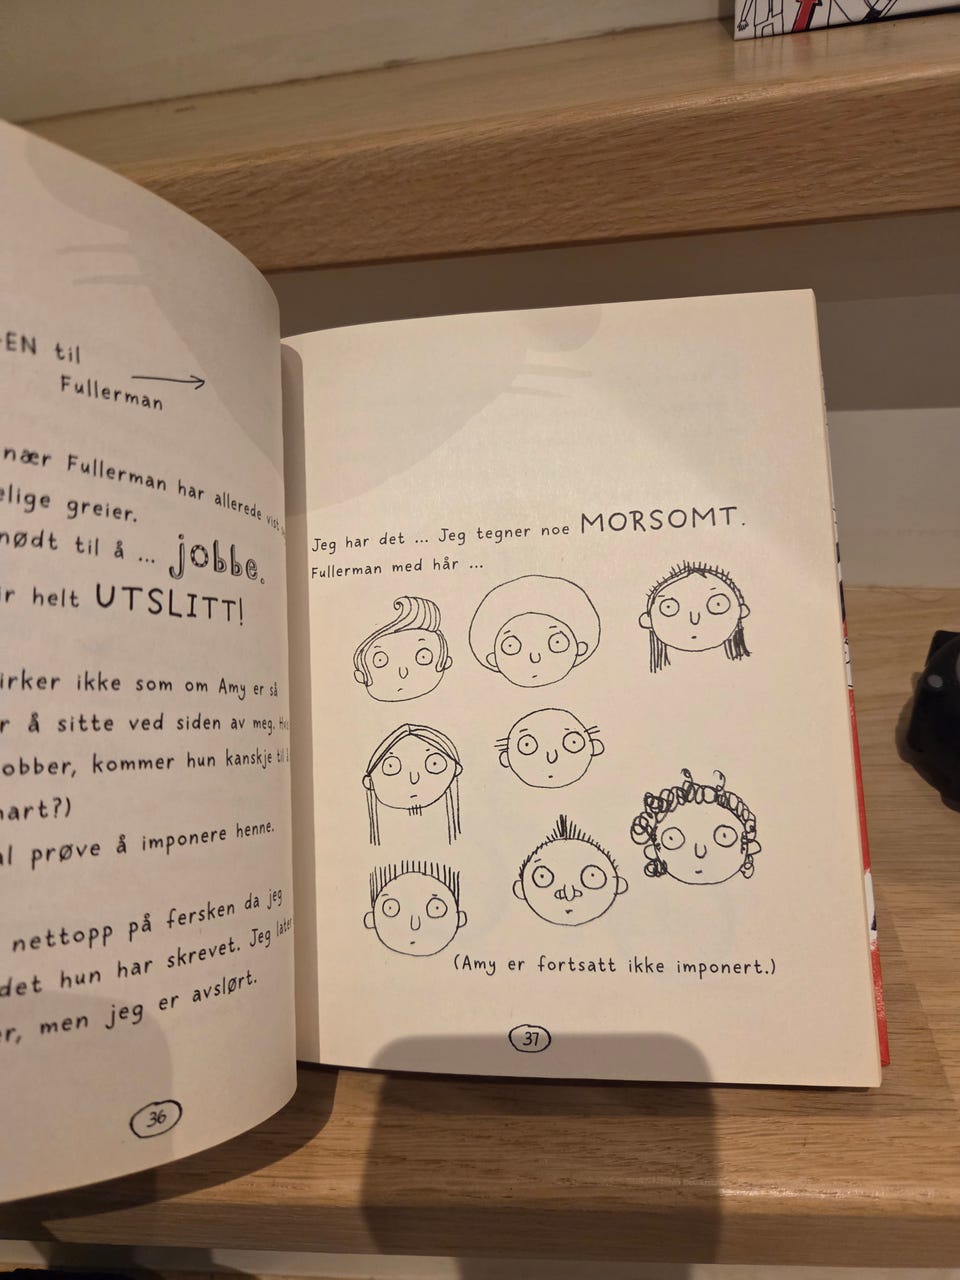 til
Fullerman
nær Fullerman har allerede
greier.
nødt til å ... jobbe.
helt UTSLITT!
ikke som om Amy er så
å sitte ved siden av meg.
kommer hun kanskje til å
prøve å imponere henne.
nettopp på fersken da jeg
det hun har skrevet. Jeg later
men jeg er avslørt.
36
Jeg har det ... Jeg tegner noe MORSOMT.
Fullerman med hår ...
(Amy er fortsatt ikke imponert.)
37